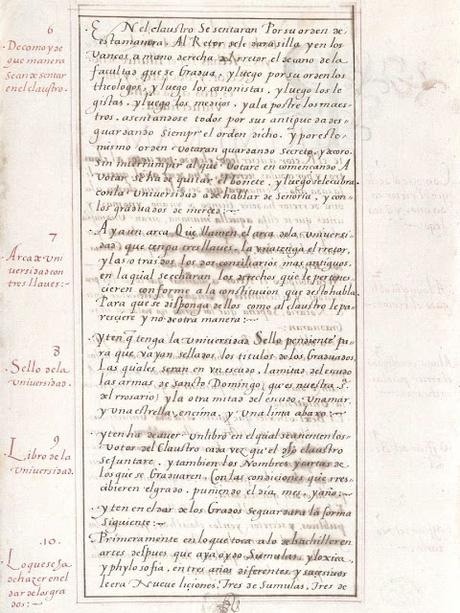 6
De como y de
que manera
se an de sentar
en el claustro.
EN el claustro Se sentaran Por su orden de
esta manera. Al Retor se le dara silla y en los
vancos a mano derecha de Retor el decano de la
facultad que se Gradua, y luego por su orden los
theologos, y luego los canonistas, y luego los le
gistas, y luego los medicos, y a la postre los maes
tros, asentandose todos por sus antiguedades
guardando Siempre el orden dicho, y por este
mismo orden Votaran guardando Secreto, y decoro
Sin interrumpir al que Votare en comencando A
Votar se ha de quitar el bonete, y luego se le cubra
con la Universidad a de hablar de Señoria, y con
los graduados de merced:~
7
Arca de Uni
versidad con
tres llaves:~
Aya un arca Que llamen el arca de la Universi
dad que tenga tres llaves. la una tenga el rretor,
y las otras dos los dos conciliarios mas antiguos
en la qual se echaran los derechos que le pertene
cieren conforme a la constitucion que dello habla
Para que se disponga dellos como al claustro le pa
resciere y no de otra manera:~
8
Sello de la
Universidad.
y ten q̃ tenga la Universidad Sello pendiente pa
ra que vayan sellados los titulos de los Graduados.
Las quales seran en un escudo, la mitad del escudo
las armas de sancto Domingo, que es nuestra s.ª
del rrosario, y la otra mitad del escudo. Una mar
y una estrella encima, y una lima abaxo:~
9
Libro de la
Universidad.
y ten ha de aver un libro en el qual se asienten los
Votos del Claustro cada vez que el dho claustro
se juntare, y tambien los Nombres y cartas de
los que se Graduaren, Con las condiciones que rres
cibieren el grado, puniendo el dia, mes, y año:~
.10.
Lo que se ha
de hazer en el
dar de los gra
dos:~
y ten en el dar de los Grados se guarda la forma
siguiente:~
Primeramente en lo que toca a lo de bachiller en
artes despues que aya oydo Sumulas, y loxica,
y phylosofia, en tres años diferentes, y sucesivos
leera Nueve liciones, Tres de Sumulas, Tres de